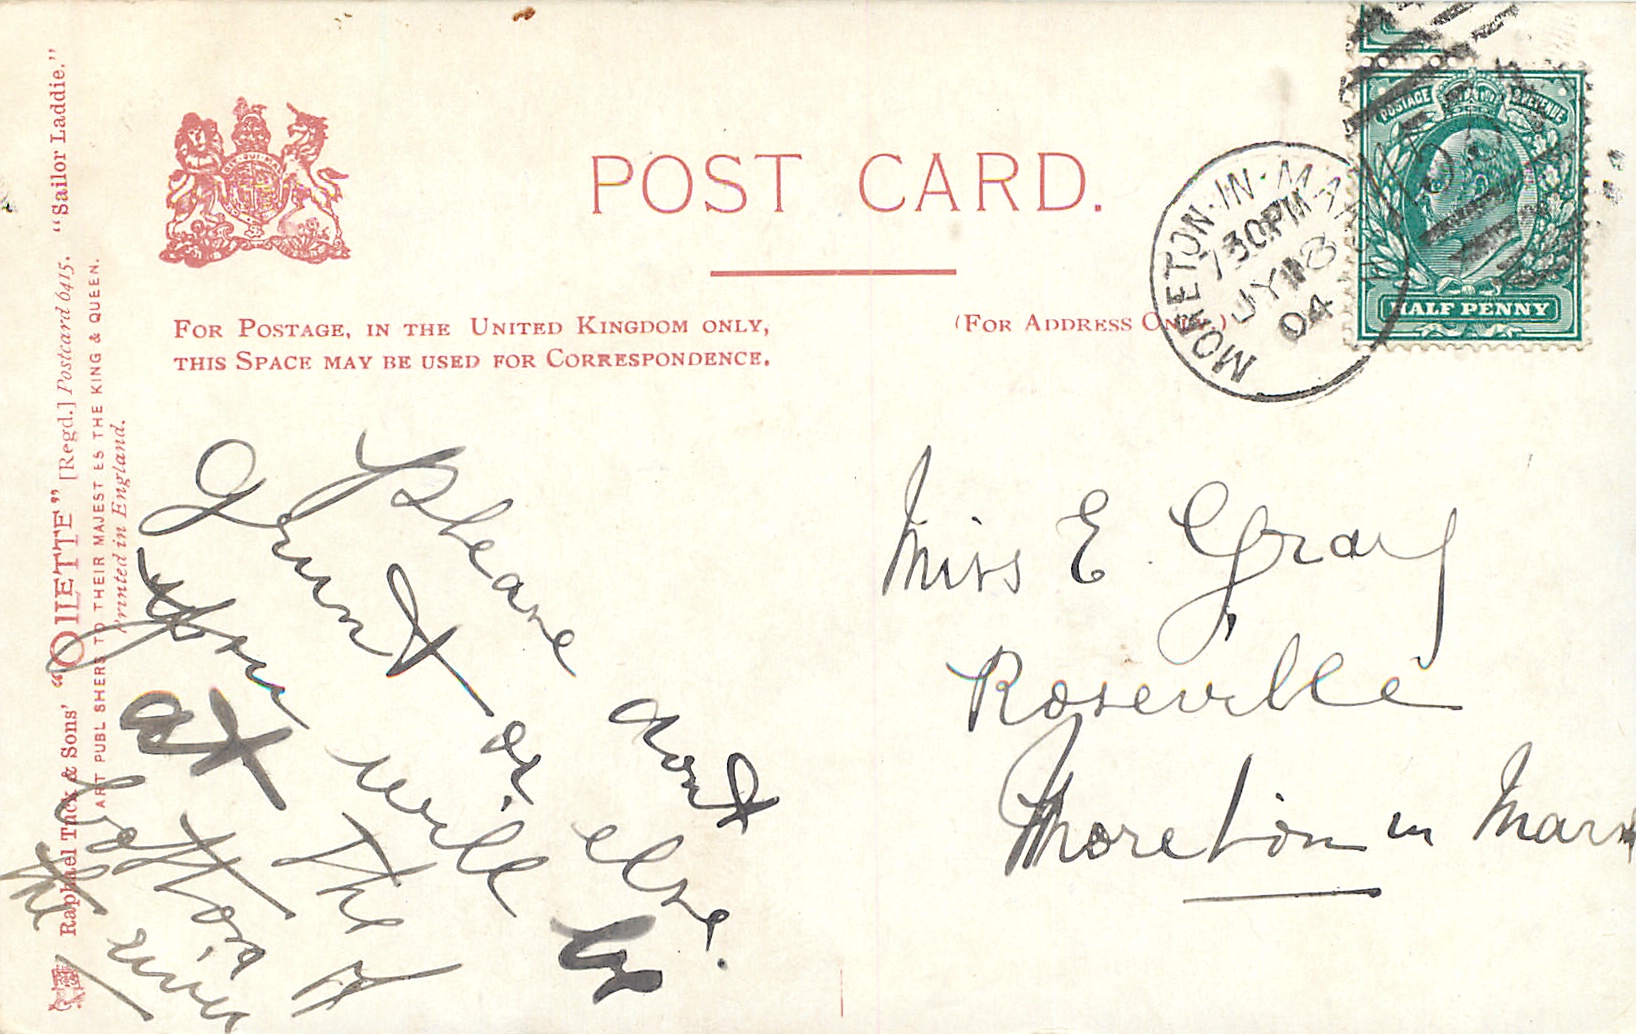 POST CARD.
FOR POSTAGE, IN THE UNITED KINGDOM ONLY,
THIS SPACE MAY BE USED FOR CORRESPONDENCE.
(FOR ADDRESS ONLY.)
POSTAGE REVENUE
HALF PENNY
MORETON-IN-MAR
730PM
JY 18
04
Please dont
Grunt or else
you will be
at the
bottom of
the river
Miss E. Gray
Roseville
Moreton in Mars
Raphael Tuck & Sons' "OILETTE" [Regd.] Postcard 6415. "Sailor Laddie."
ART PUBL SHERS TO THEIR MAJEST ES THE KING & QUEEN.
Printed in England.